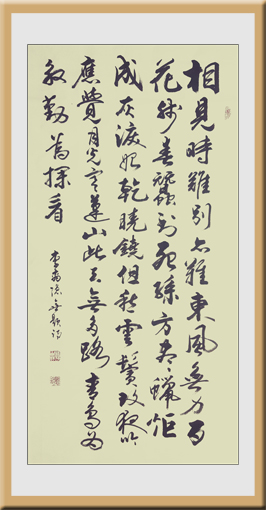 相見時難別亦難東風無力百
花殘春蠶到死絲方盡蠟炬
成灰淚始乾曉鏡但愁雲鬢改夜吟
應覺月光寒蓬山此去無多路青鳥
殷勤為探看
李商隱無題詩